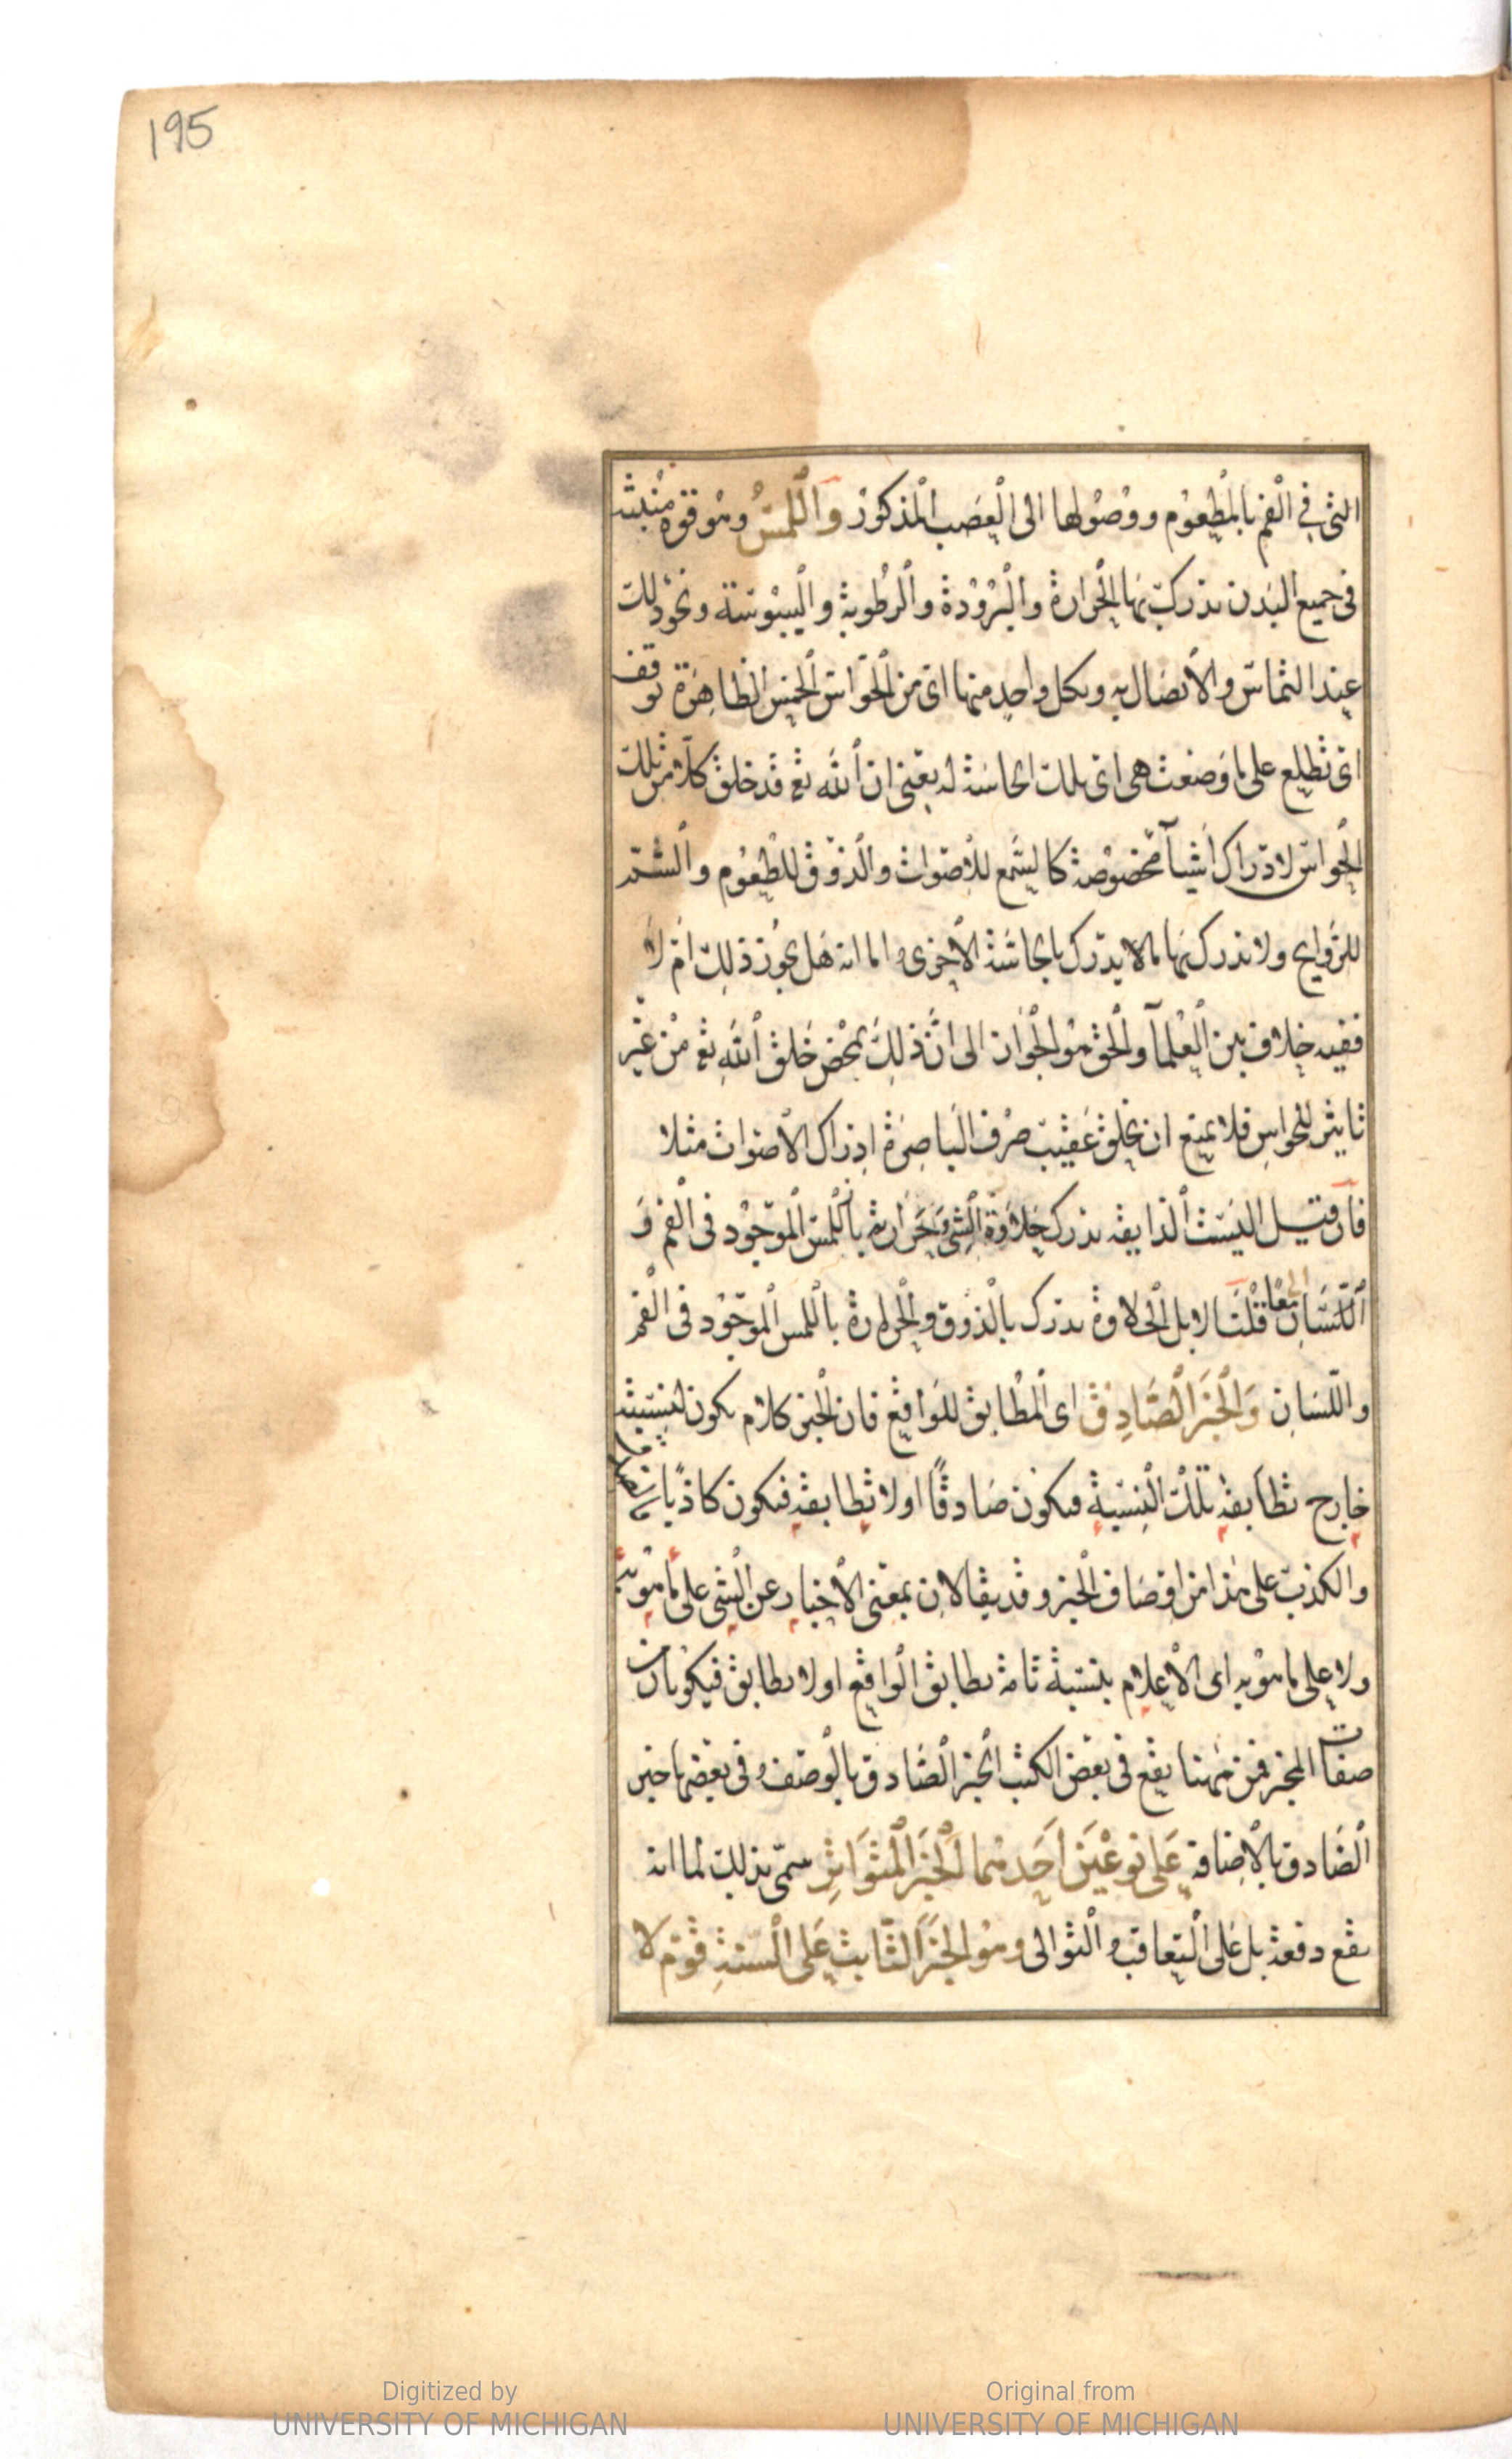 195
التى فى الفم بالمطعوم ووصولها الى العصب المذكور واللمس وهو قوة منبثة
فى جميع البدن تدرك بها الحرارة والبرودة والرطوبة واليبوسة ونحو ذلك
عند التماس والاتصال به وبكل واحد منها اى من الحواس الخمس الظاهرة توقف
اى تطلع على ما وضعت هى اى تلك الحاسة له يعنى ان الله تع قد خلق كلا من تلك
الحواس لادراك اشيآ مخصوصة كالسمع للاصوات والذوق للطعوم والشم
للروايح ولا تدرك بها ما لا يدرك بالحاسة الاخرى واما انه هل يجوز ذلك ام لا
ففيه خلاف بين العلمآ والحق هو الجواز الى ان ذلك بمحض خلق الله تع من غير
تاثير للحواس فلا يمتع ان يخلق عقيب صرف الباصرة ادراك الاصوات مثلا
فان قيل اليست الذايقة تدرك حلاوة الشى وحرارته باللمس الموجود فى الفم و
اللسان معا قلنا لا بل الحلاوة تدرك بالذوق والحرارة باللمس الموجود فى الفم
واللسان والخبر الصادق اى المطابق للواقع فان الخبر كلام يكون لنسبته
خارج تطابقه تلك النسبة فيكون صادقا او لا تطابقه فيكون كاذبا
والكذب على هذا من اوصاف الخبر وقد يقالان بمعنى الاخبار عن الشى على ما هو به
ولا على ما هو به اى الاعلام بنسبة تامة تطابق الواقع او لا تطابق فيكونان من
صفات المخبر فمن ههنا يقع فى بعض الكتب الخبر الصادق بالوصف وفى بعضها خبر
الصادق بالاضافة على نوعين احدهما الخبر المتواتر سمى بذلك لما انه
يقع دفعة بل على التعاقب والتوالى وهو الخبر الثابت على السنة قوم لا
Digitized by
UNIVERSITY OF MICHIGAN
Original from
UNIVERSITY OF MICHIGAN